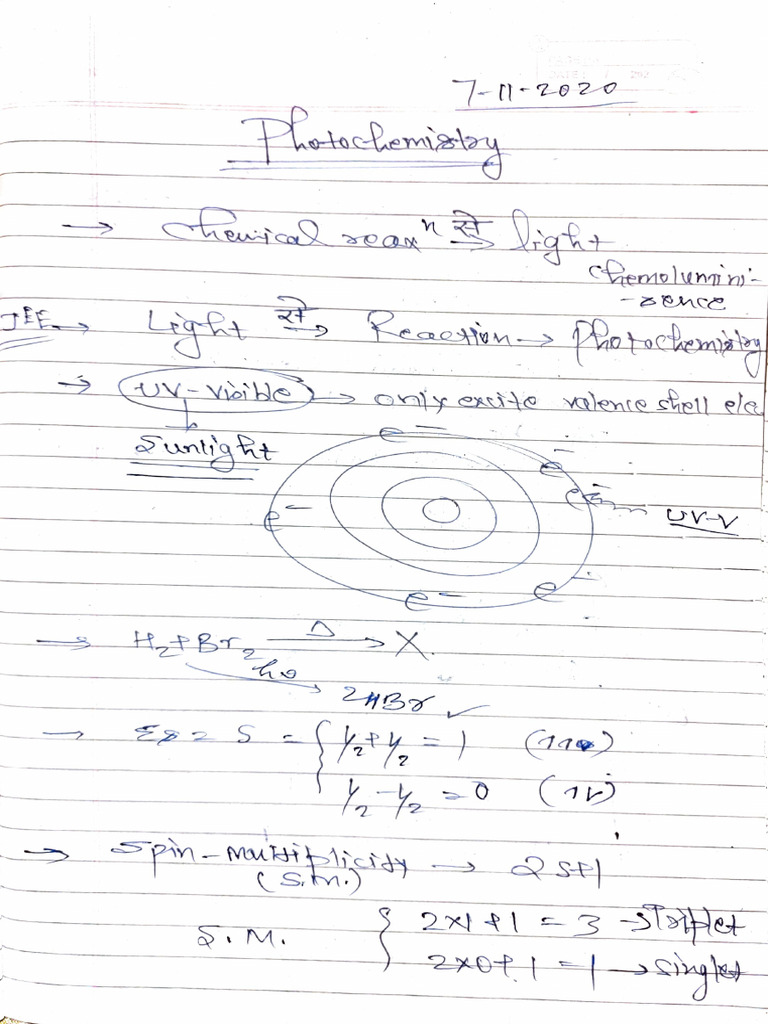 7-11-2020
Photochemistry
→ Chemical reaxⁿ से → light
chemolumini-
-sence
JEE → Light से → Reaction → Photochemistry
→ UV-visible → only excite valence shell ele
Sunlight
e⁻ e⁻ e⁻ e⁻ e⁻ e⁻
UV-V
→ H₂+Br₂ —Δ→ X.
hν → 2HBr ✓
→ Σs = S = { 1/2+1/2 = 1 (11)
1/2-1/2 = 0 (1↓)
→ Spin-multiplicity → 2S+1
(S.M.)
S.M. { 2×1+1 = 3 → Triplet
2×0+1 = 1 → singlet